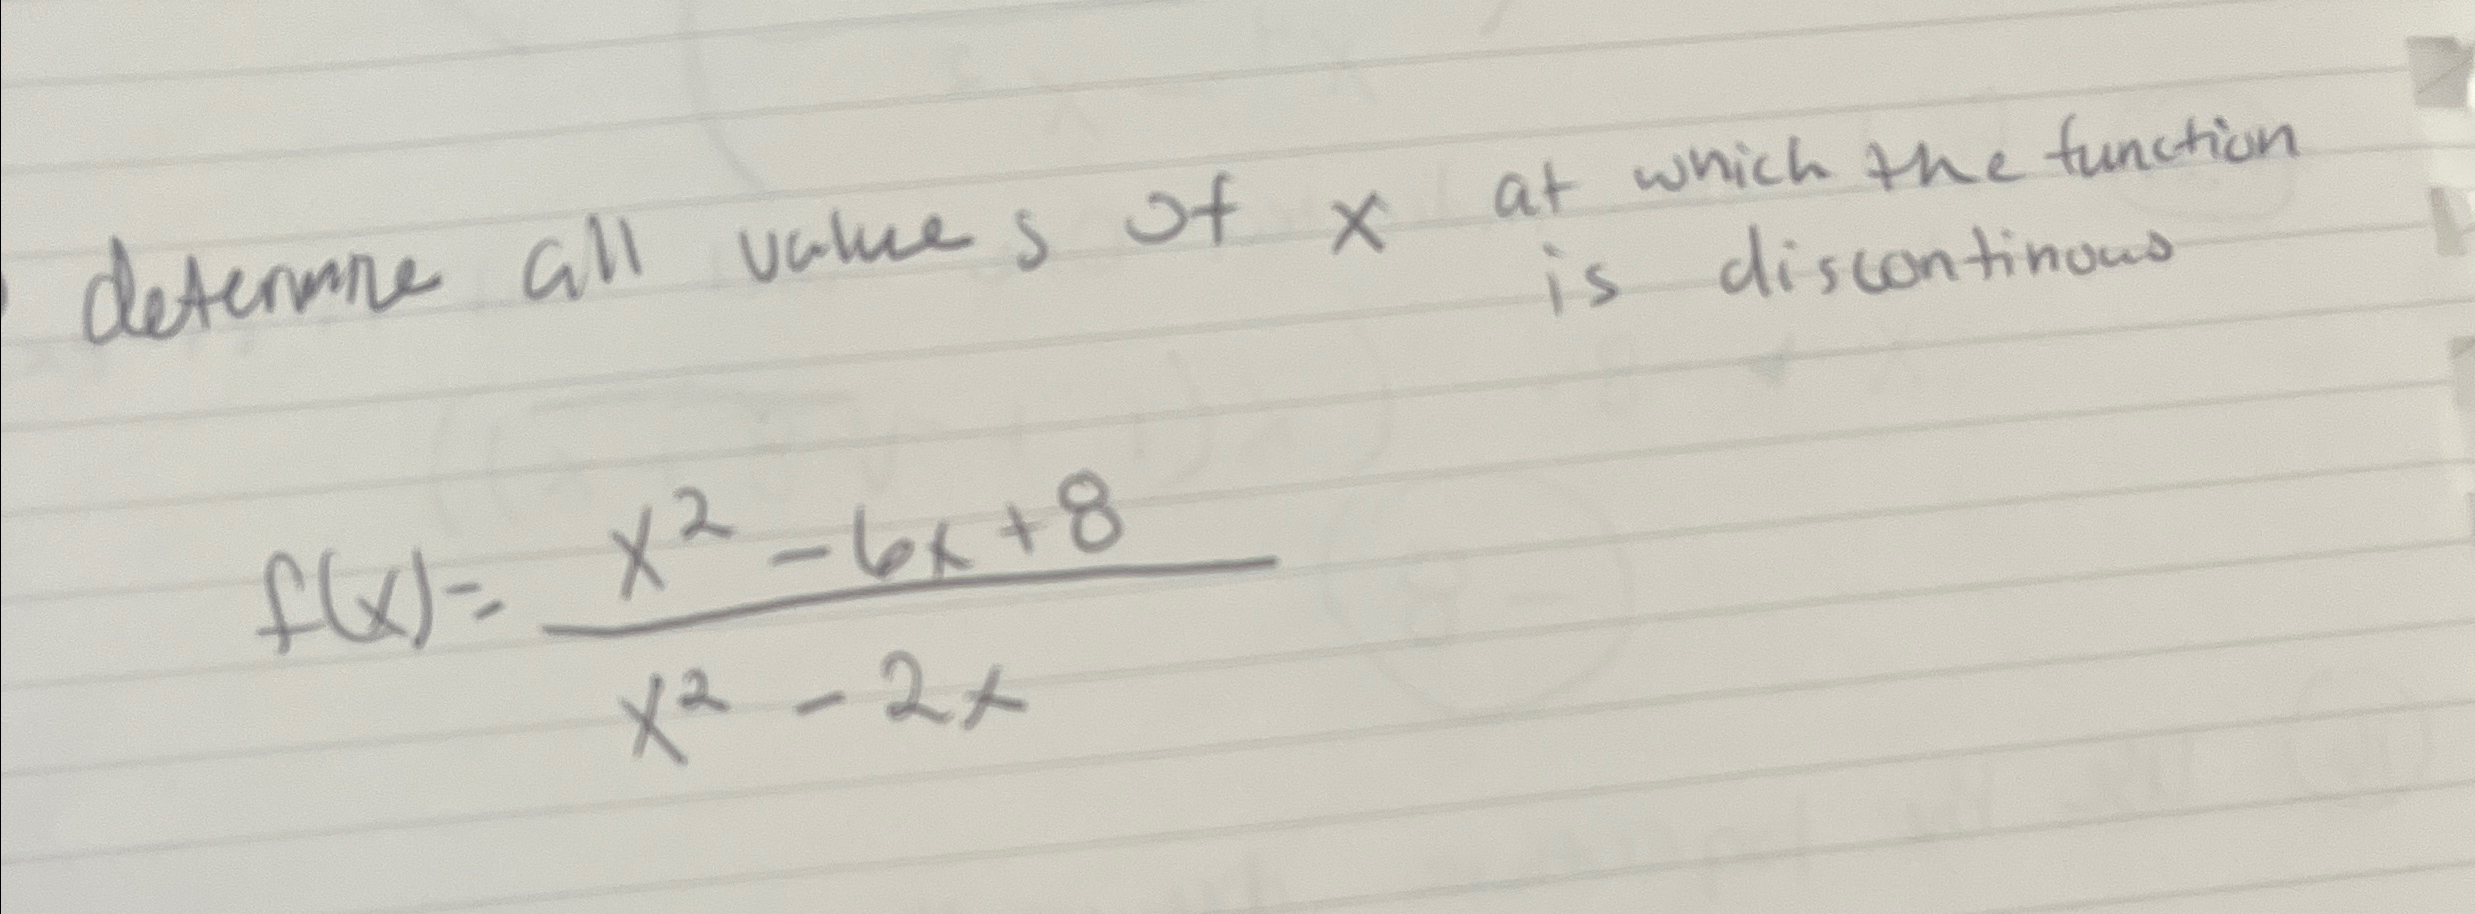 determine all values of x at which the function
is discontinous
f(x)= x² - 6x + 8
x² - 2x